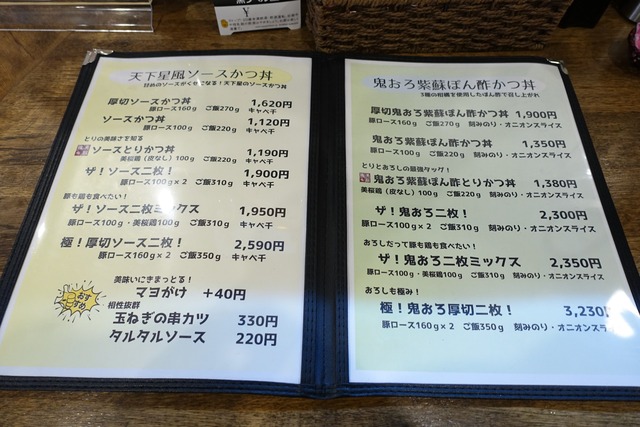 天下星風ソースかつ丼
甘めのソースがくせになる！天下星のソースかつ丼
厚切ソースかつ丼 1,620円
豚ロース160g ご飯270g キャベ千
ソースかつ丼 1,120円
豚ロース100g ご飯220g キャベ千
とりの美味さを知る
ソースとりかつ丼 1,190円
美桜鶏（皮なし）100g ご飯220g キャベ千
ザ！ソース二枚！ 1,900円
豚ロース100g×2 ご飯310g キャベ千
豚も鶏も食べたい！
ザ！ソース二枚ミックス 1,950円
豚ロース100g・美桜鶏100g ご飯310g キャベ千
極！厚切ソース二枚！ 2,590円
豚ロース160g×2 ご飯350g キャベ千
美味いにきまっとる！
おすすめ
マヨがけ +40円
相性抜群
玉ねぎの串カツ 330円
タルタルソース 220円
鬼おろ紫蘇ぽん酢かつ丼
3種の柑橘を使用したぽん酢で召し上がれ
厚切鬼おろ紫蘇ぽん酢かつ丼 1,900円
豚ロース160g ご飯270g 刻みのり・オニオンスライス
鬼おろ紫蘇ぽん酢かつ丼 1,350円
豚ロース100g ご飯220g 刻みのり・オニオンスライス
とりとおろしの最強タッグ！
鬼おろ紫蘇ぽん酢とりかつ丼 1,380円
美桜鶏（皮なし）100g ご飯220g 刻みのり・オニオンスライス
ザ！鬼おろ二枚！ 2,300円
豚ロース100g×2 ご飯310g 刻みのり・オニオンスライス
おろしだって豚も鶏も食べたい！
ザ！鬼おろ二枚ミックス 2,350円
豚ロース100g・美桜鶏100g ご飯310g 刻みのり・オニオンスライス
おろしも極み！
極！鬼おろ厚切二枚！ 3,230円
豚ロース160g×2 ご飯350g 刻みのり・オニオンス